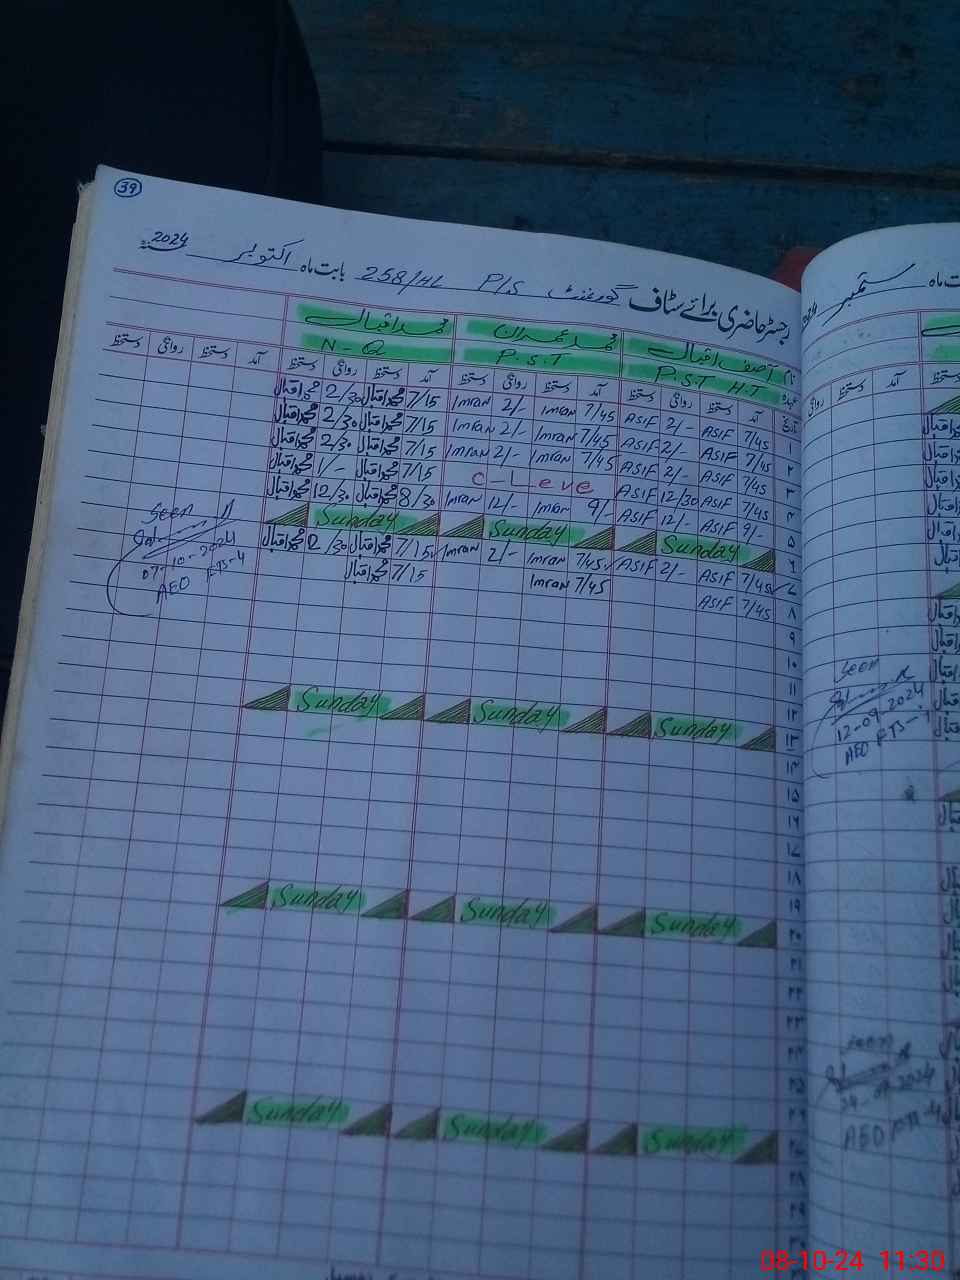 39
رجسٹر حاضری برائے سٹاف گورنمنٹ P/S 258/HL بابت ماہ اکتوبر 2024
نام آصف اقبال محمد عمران محمد اقبال
عہدہ P.S.T H.T P.S.T N-Q
تاریخ آمد دستخط روانگی دستخط آمد دستخط روانگی دستخط آمد دستخط روانگی دستخط آمد دستخط روانگی دستخط
۱ 7/45 ASIF 2/- ASIF 7/45 Imran 2/- Imran 7/15 محمد اقبال 2/30 محمد اقبال
۲ 7/45 ASIF 2/- ASIF 7/45 Imran 2/- Imran 7/15 محمد اقبال 2/30 محمد اقبال
۳ 7/45 ASIF 2/- ASIF 7/45 Imran 2/- Imran 7/15 محمد اقبال 2/30 محمد اقبال
۴ 7/45 ASIF 12/30 ASIF C-Leve 7/15 محمد اقبال 1/- محمد اقبال
۵ 9/- ASIF 12/- ASIF 9/- Imran 12/- Imran 8/30 محمد اقبال 12/30 محمد اقبال
۶ Sunday Sunday Sunday
۷ 7/45 ASIF 2/- ASIF 7/45 Imran 2/- Imran 7/15 محمد اقبال 2/30 محمد اقبال
۸ 7/45 ASIF 7/45 Imran 7/15 محمد اقبال
۹
۱۰
۱۱
۱۲
۱۳ Sunday Sunday Sunday
۱۴
۱۵
۱۶
۱۷
۱۸
۱۹
۲۰ Sunday Sunday Sunday
۲۱
۲۲
۲۳
۲۴
۲۵
۲۶
۲۷ Sunday Sunday Sunday
۲۸
۲۹
Seen
07-10-2024
AEO
ماہ ستمبر 2024
آمد دستخط روانگی دستخط
Seen
12-09-2024
AEO
Seen
2024
AEO
08-10-24 11:30